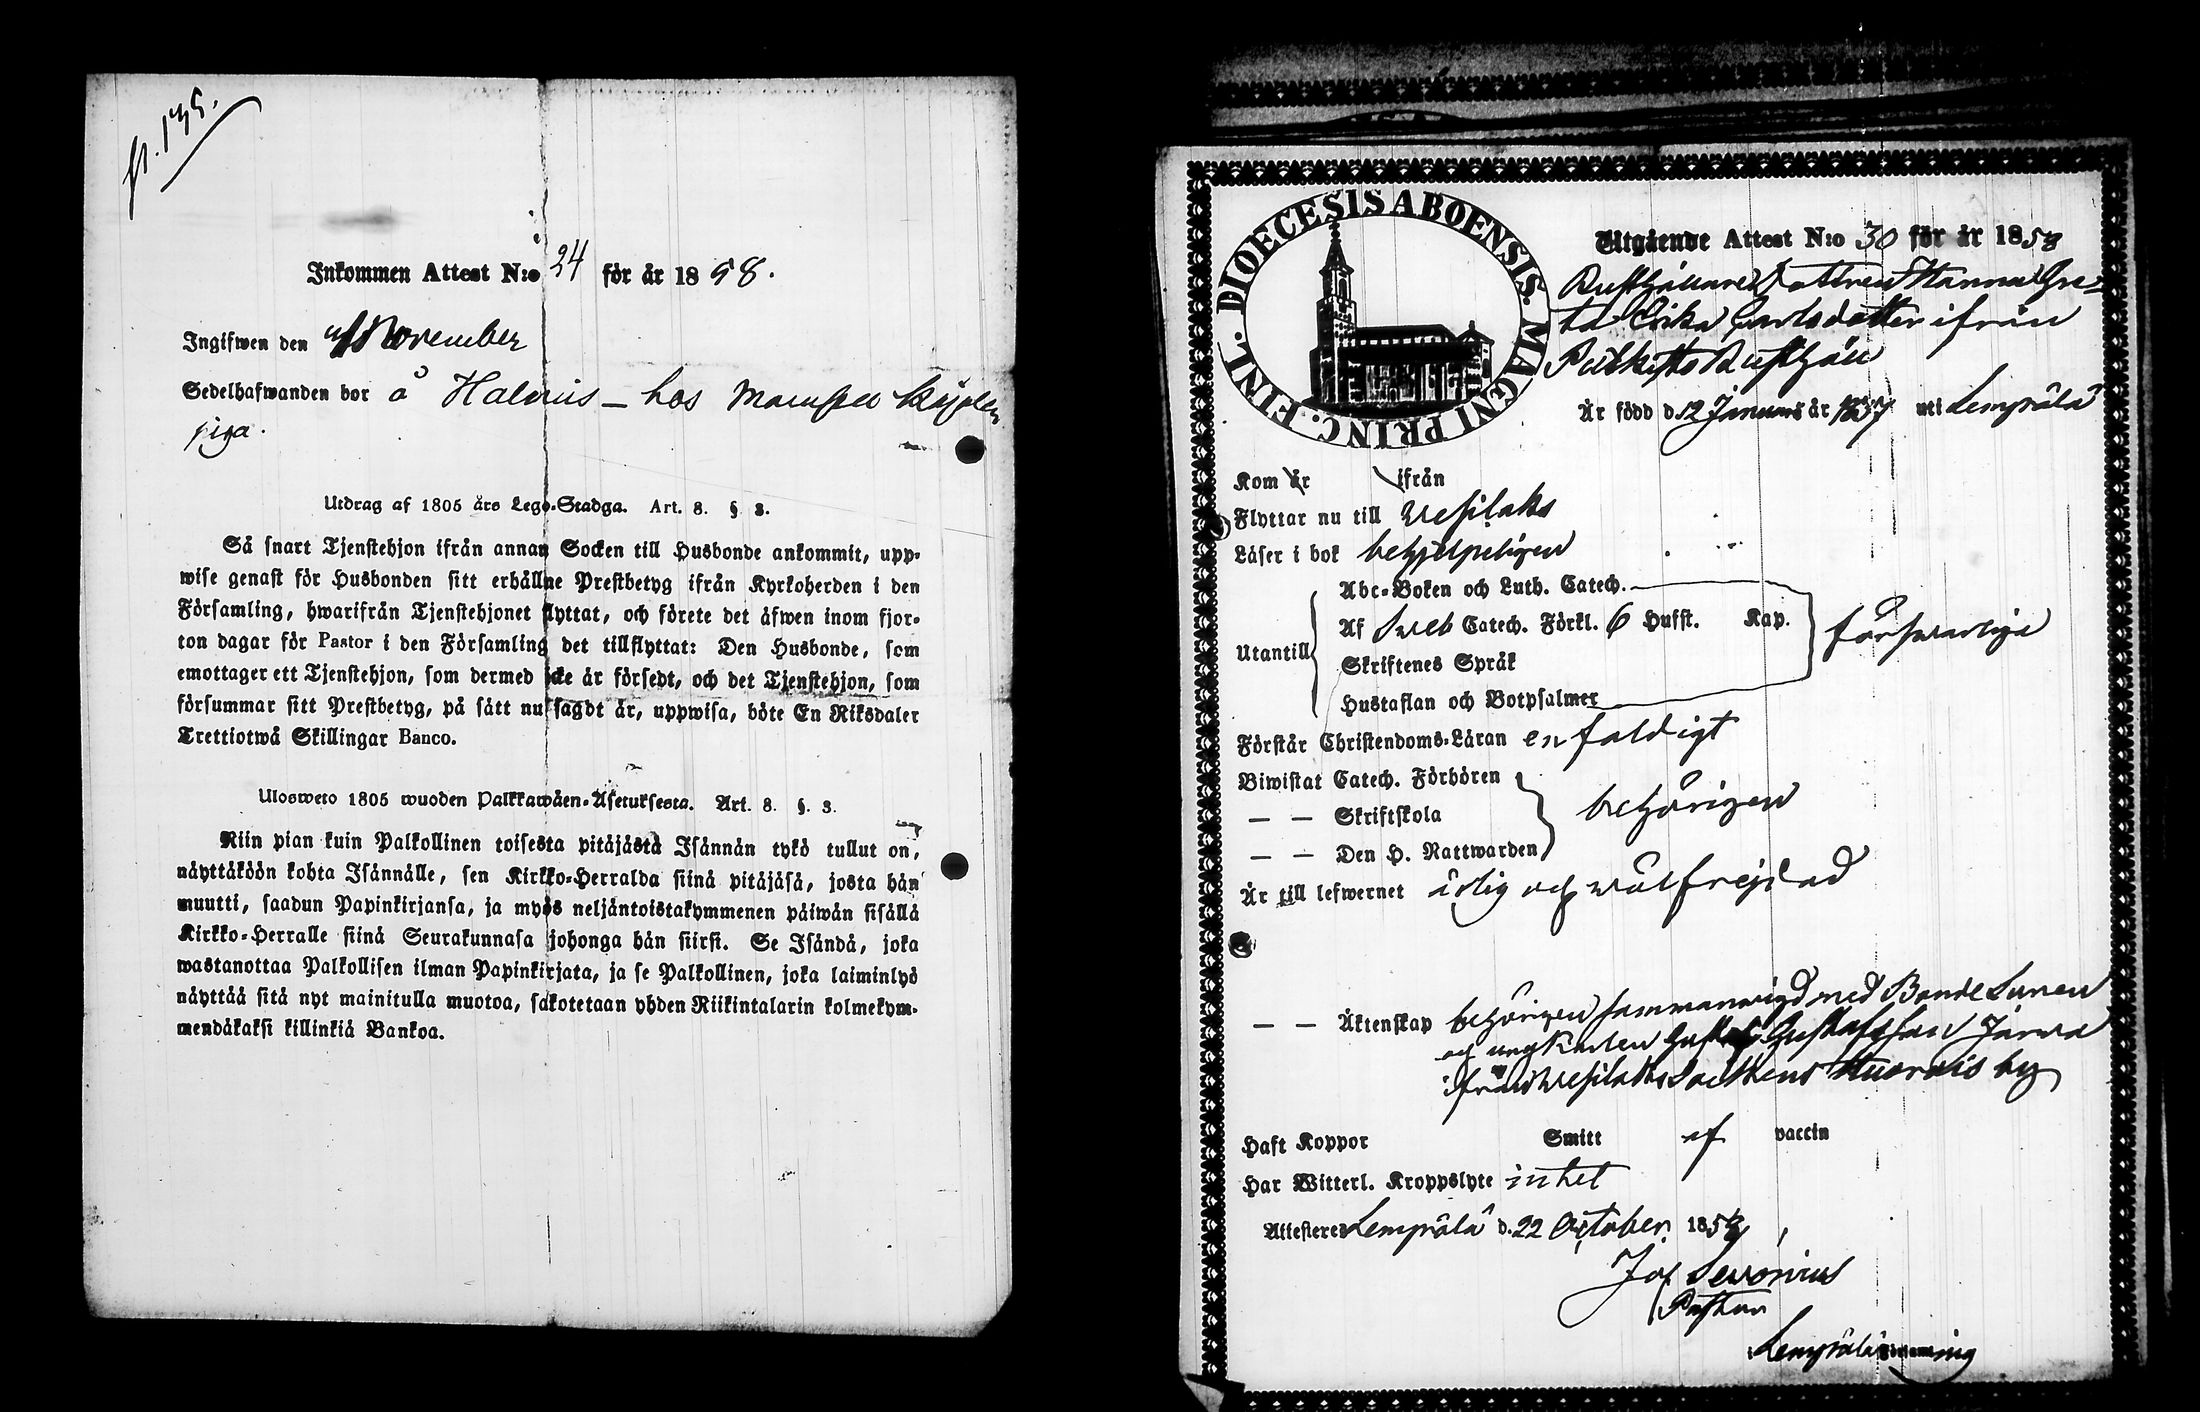 p. 135.
Inkommen Attest N:o 24 för år 1858.
Ingifwen den November
Sedelhafwanden bor å Halmis – hos
piga.
Utdrag af 1805 års Lego-Stadga. Art. 8. § 3.
Så snart Tjenstehjon ifrån annan Socken till Husbonde ankommit, upp-
wise genast för Husbonden sitt erhållne Prestbetyg ifrån Kyrkoherden i den
Församling, hwarifrån Tjenstehjonet flyttat, och förete det äfwen inom fjor-
ton dagar för Pastor i den Församling det tillflyttat: Den Husbonde, som
emottager ett Tjenstehjon, som dermed icke är försedt, och det Tjenstehjon, som
försummar sitt Prestbetyg, på sätt nu sagdt är, uppwisa, böte En Riksdaler
Trettiotwå Skillingar Banco.
Ulosweto 1805 wuoden Palkkawäen-Asetuksesta. Art. 8. §. 3.
Niin pian kuin Palkollinen toisesta pitäjästä Isännän tykö tullut on,
näyttäköön kohta Isännälle, sen Kirkko-Herralda siinä pitäjäsä, josta hän
muutti, saadun Papinkirjansa, ja myös neljäntoistakymmenen päiwän sisällä
Kirkko-Herralle siinä Seurakunnasa johonga hän siirsi. Se Isändä, joka
wastanottaa Palkollisen ilman Papinkirjata, ja se Palkollinen, joka laiminlyö
näyttää sitä nyt mainitulla muotoa, sakotetaan yhden Riikintalarin kolmekym-
mendäkaksi killinkiä Bankoa.
DIOECESIS ABOENSIS. MAGNI PRINC. FINL.
Utgående Attest N:o 30 för år 1858
Rusthållare Dottren Hanna Gre-
ta Erika Carlsdotter ifrån
Rusthåll
Är född d. 12 Januarii år 1837 uti Lempäälä
Kom år ifrån
Flyttar nu till Wesilaks
Läser i bok behjelpeligen
Abc-Boken och Luth. Catech.
Utantill Af Sveb Catech. Förkl. 6 Hufst. Kap. försvarlige
Skriftenes Språk
Hustaflan och Botpsalmer
Förstår Christendoms-Läran enfaldigt
Biwistat Catech. Förhören
— — Skriftskola behörigen
— — Den H. Nattwarden
Är till lefwernet ärlig och wälfrejdad
— — Äktenskap behörigen sammanvigd med Bonde Sonen
och ungkarlen Gustaf Gustafsson Järwa
ifrån Wesilaks Sockens by
Haft Koppor Smitt af vaccin
Har Witterl. Kroppslyte intet
Attesteres Lempäälä d. 22 October 1858
Jos Sevonius
Pastor
Lempäälä